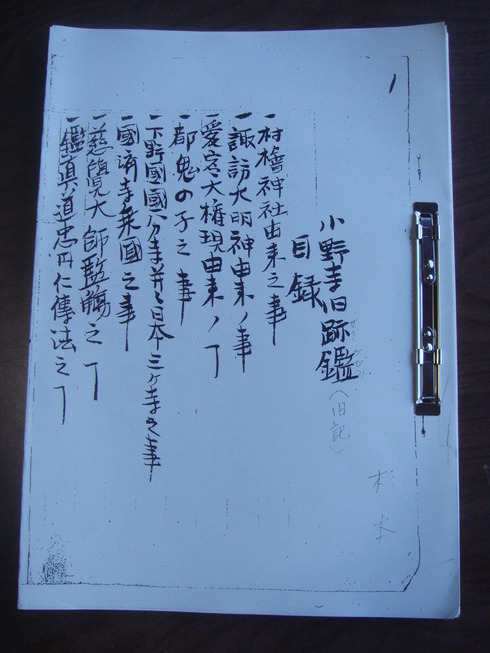 1
小野寺旧跡鑑
(旧記)
目録
一村檜神社由来之事
一諏訪大明神由来ノ事
一愛宕大権現由来ノヿ
一都鬼の子之事
一下野國國分寺并ニ日本三ヶ寺之事
一國済寺乗國之事
一慈覺大師監觴之ヿ
一鑑真道忠円仁傳法之ヿ
杉本